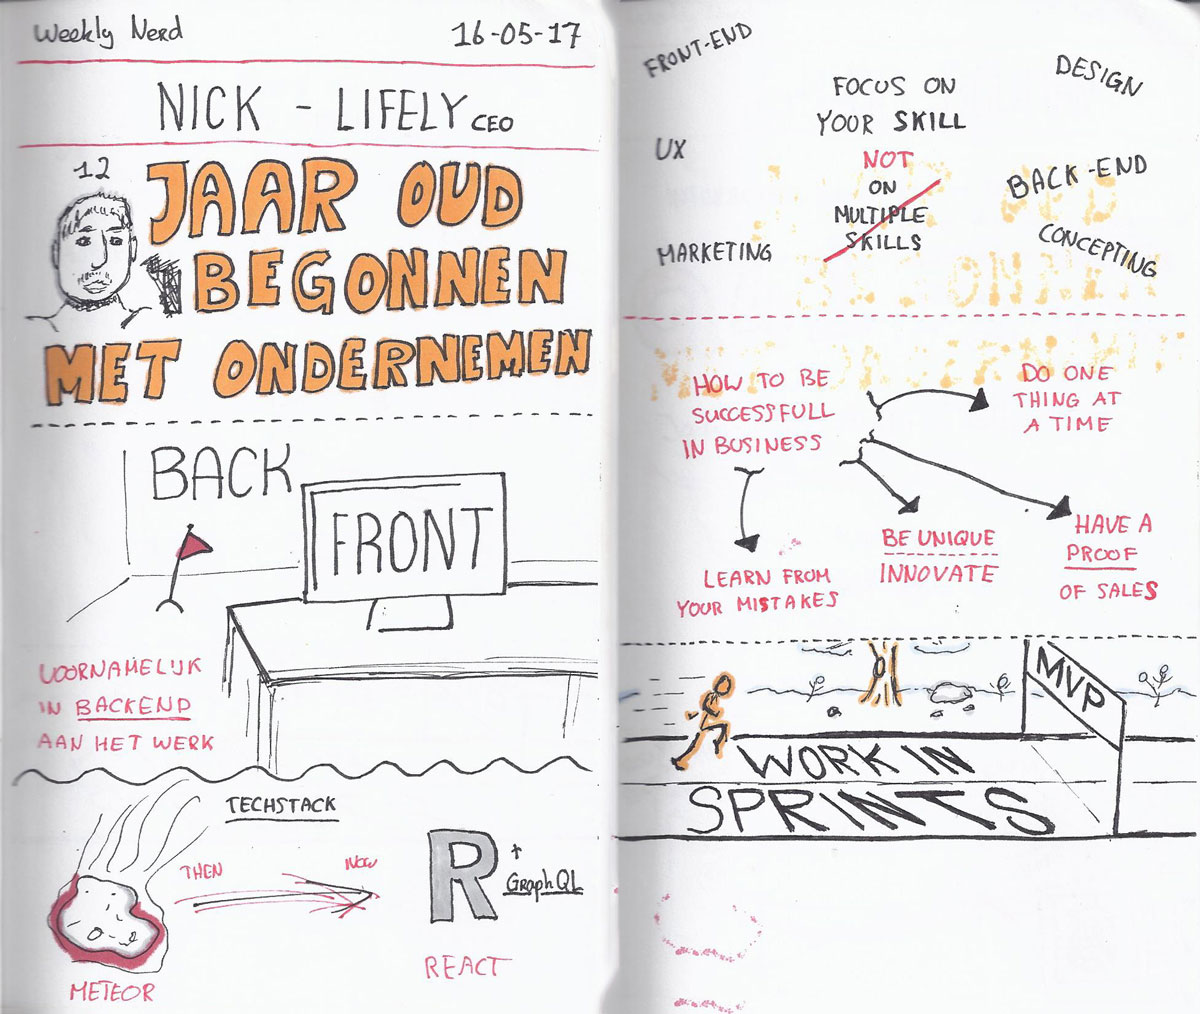 Weekly Nerd
16-05-17
NICK - LIFELY CEO
12
JAAR OUD
BEGONNEN
MET ONDERNEMEN
BACK
FRONT
VOORNAMELIJK
IN BACKEND
AAN HET WERK
TECHSTACK
THEN
NOW
R + GraphQL
METEOR
REACT
FRONT-END
DESIGN
FOCUS ON
YOUR SKILL
UX
NOT
ON
MULTIPLE
SKILLS
BACK-END
MARKETING
CONCEPTING
HOW TO BE
SUCCESSFULL
IN BUSINESS
DO ONE
THING AT
A TIME
LEARN FROM
YOUR MISTAKES
BE UNIQUE
INNOVATE
HAVE A
PROOF
OF SALES
MVP
WORK IN
SPRINTS